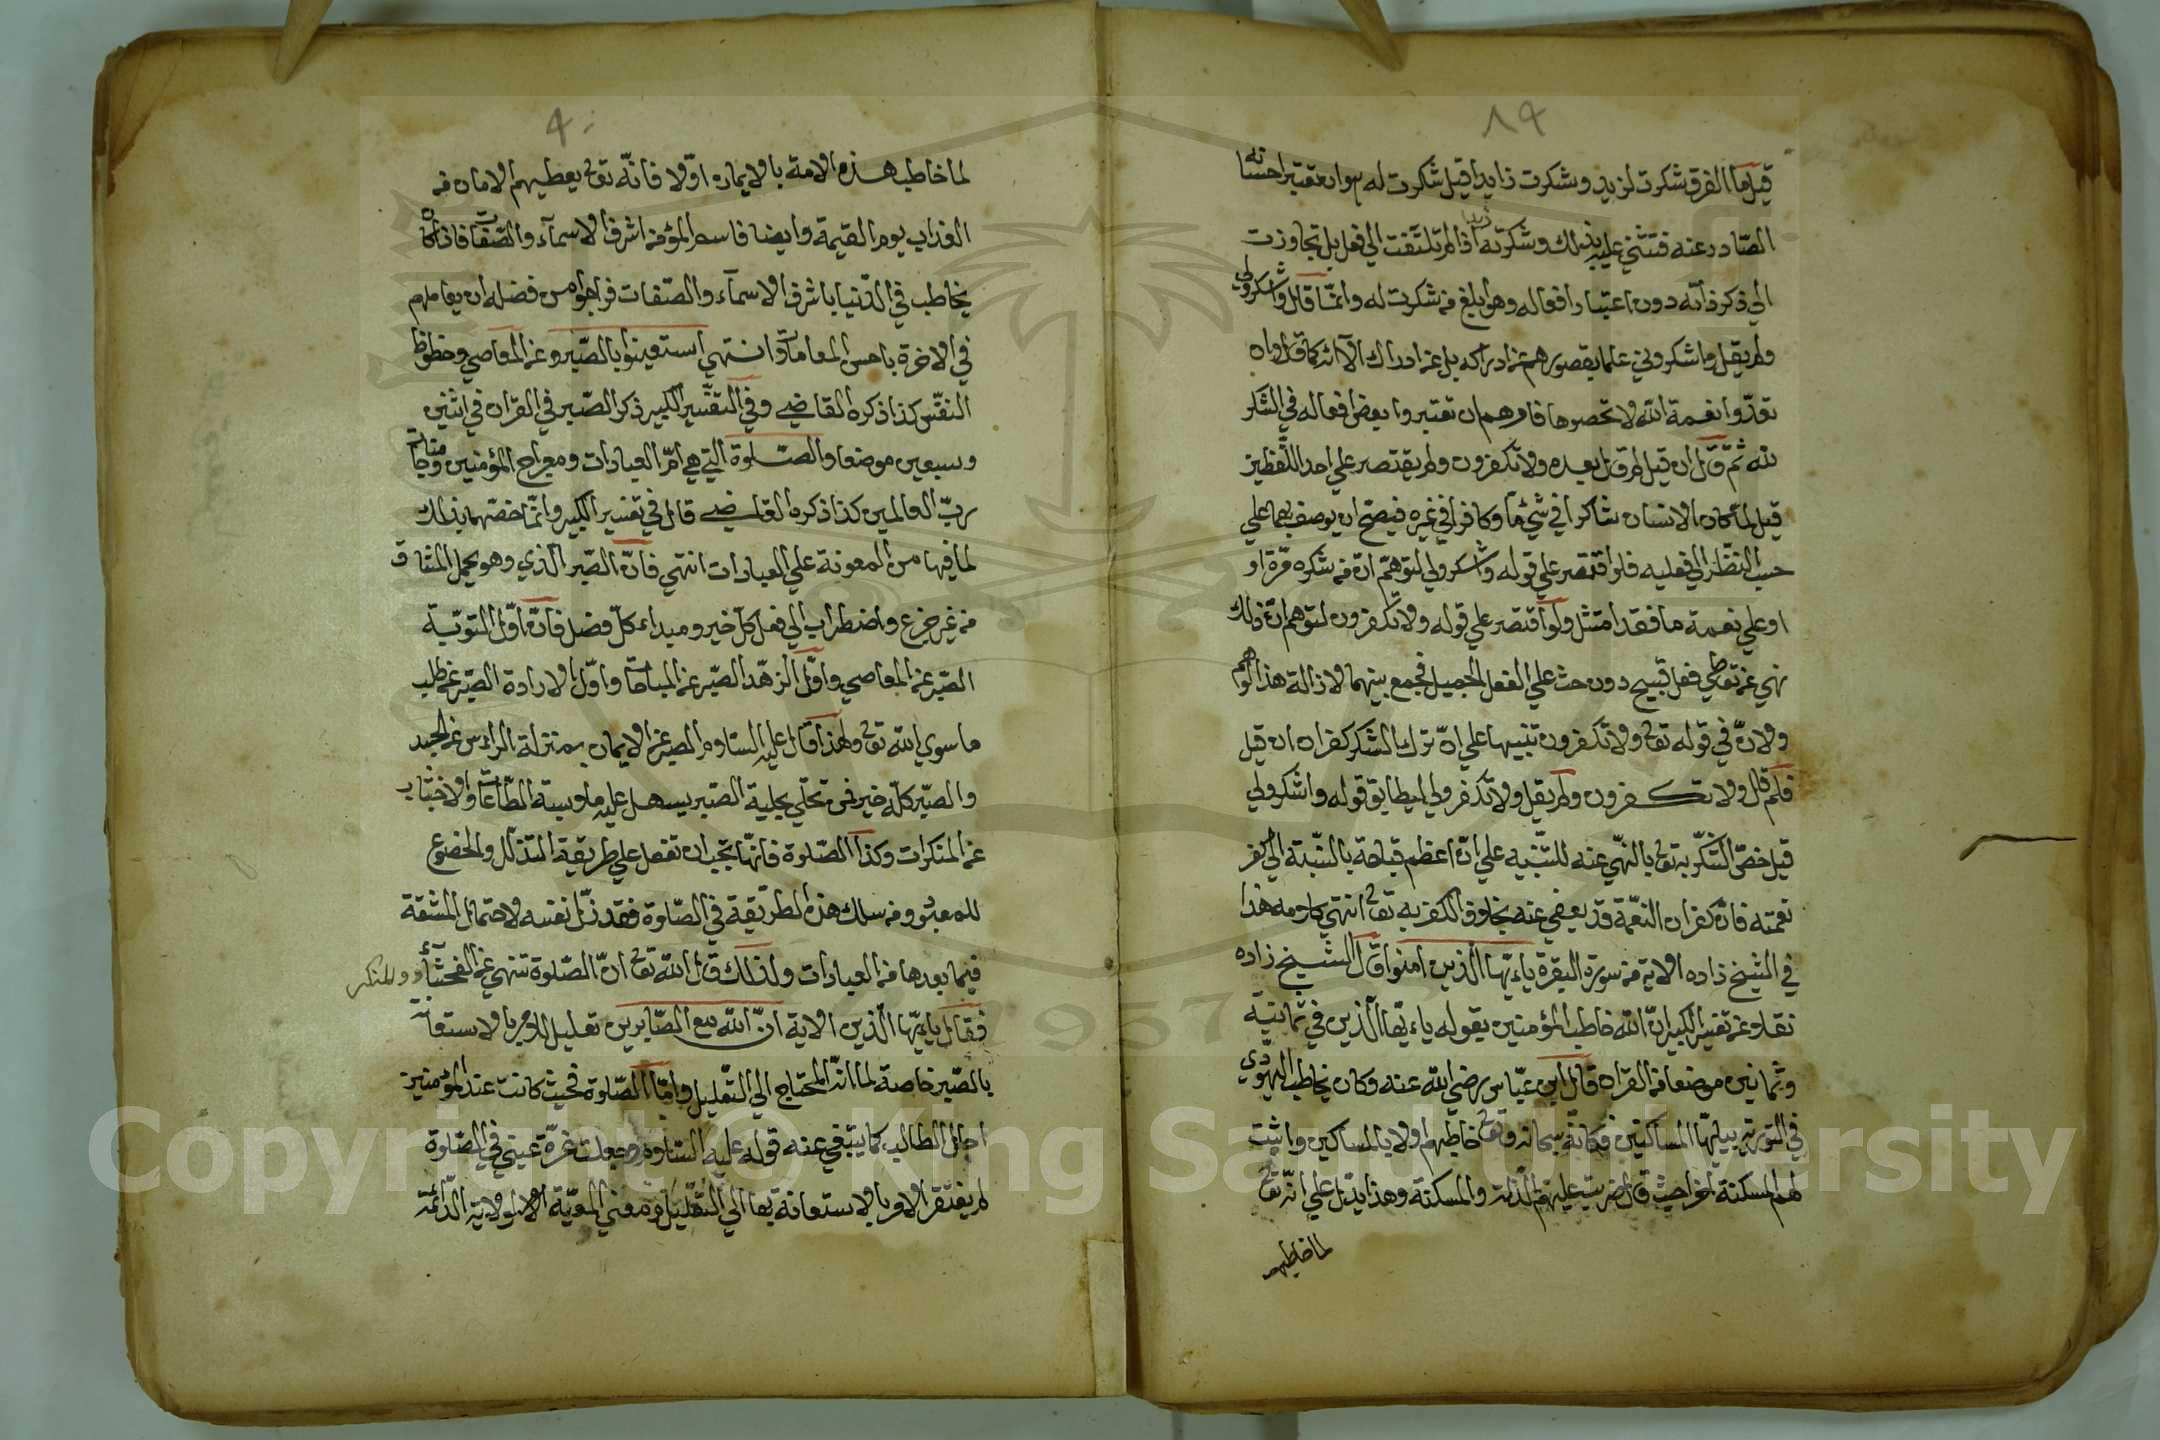 ٨٩
قيل ما الفرق شكرت لزيد وشكرت زايدا قيل شكرت له هو ان تعتبر احسانه
الصادر عنه فتثني عليه بذلك وشكرته اذا لم تلتفت الى فعل بل تجاوزت
الى ذكر ذاته دون اعتبار افعاله وهو ابلغ من شكرت له وانما قال واشكرولي
ولم يقل واشكروني علما بقصورهم عن ادراكه بل عن ادراك الآئه كما قال وان
تعدوا نعمة الله لا تحصوها فامرهم ان تعتبروا بعض افعاله في الشكر
لله ثم قال ان قيل لم قال بعده ولا تكفرون ولم يقتصر علي احد اللفظين
قيل لما كان الانسان شاكرا في شئ ما وكافرا في غيره فيصح ان يوصف بهما علي
حسب النظر الي فعليه فلو اقتصر علي قوله واشكرولي لتوهم ان من شكره مرة او
او علي نعمة ما فقد امتثل ولو اقتصر علي قوله ولا تكفرون لتوهم ان ذلك
نهي عن تعاطي فعل قبيح دون حث علي الفعل الجميل فجمع بينهما لازالة هذا الوهم
ولان في قوله تع ولا تكفرون تنبيها علي ان ترك الشكر كفران ان قيل
فلم قال ولا تكفرون ولم يقل ولا تكفرولي ليطابق قوله واشكرولي
قيل خص الكفر به تع بالنهي عنه للتنبيه علي ان اعظم قباحة بالنسبة الي كفر
نعمته فان كفران النعمة قد يعفي عنه بخلاف الكفر به تع انتهي كلامه هذا
في الشيخ زاده الاية من سورة البقرة ياءيها الذين امنوا قال الشيخ زاده
نقلا عن تفسير الكبير ان الله خاطب المؤمنين بقوله ياءيها الذين في ثمانية
وثمانين موضعا من القران قال ابن عباس رضي الله عنه وكان يخاطب اليهودي
في التورية بيايها المساكين فكانه سبحانه وتع خاطبهم اولا بالمساكين واثبت
لهم المسكنة اخرا حيث قال ضربت عليهم الذلة والمسكنة وهذا يدل علي انه تع
لما خاطبهم
٩٠
لما خاطب هذه الامة بالايمان اولا فانه تع يعطيهم الامان من
العذاب يوم القيمة وايضا فاسم المؤمن اشرف الاسمآء والصفات فاذا كان
يخاطب في الدنيا باشرف الاسمآء والصفات فرجوا من فضله ان يعاملهم
في الاخرة باحسن المعاملة وانتهي استعينوا بالصبر عن المعاصي وحظوظ
النفس كذا ذكره القاضي وفي التفسير الكبير ذكر الصبر في القران في اثنين
وسبعين موضعا والصلوة التي هي ام العبادات ومعراج المؤمنين ومناجات
رب العالمين كذا ذكره القاضي قال في تفسير الكبير وانما خصهما بذلك
لما فيها من المعونة علي العبادات انتهي فان الصبر الذي وهو يحمل المشاق
من غير جزع واضطراب الي فعل كل خير ومبداء كل فضل فان اول التوبة
الصبر عن المعاصي واول الزهد الصبر عن المباحات واول الارادة الصبر عن طلب
ما سوي الله تع ولهذا قال عليه السلام الصبر من الايمان بمنزلة الرأس من الجسد
والصبر كله خير فمن تحلي بحلية الصبر يسهل عليه ملابسة الطاعات والاجتناب
عن المنكرات وكذا الصلوة فانها تجب ان تفعل علي طريقة التذلل والخضوع
للمعبود ومن سلك هذه الطريقة في الصلوة فقد ذلل نفسه لاحتمال المشقة
فيما بعدها من العبادات ولذلك قال الله تع ان الصلوة تنهي عن الفحشآء والمنكر
فقال ياءيها الذين الاية ان الله مع الصابرين تعليل للامر بالاستعانة
بالصبر خاصة لما انه المحتاج الي التعليل واما الصلوة فحيث كانت عند المؤمنين
اجل المطالب كما ينبئ عنه قوله عليه السلام وجعلت قرة عيني في الصلوة
لم يفتقر الامر بالاستعانة بها الي التعليل ومعني المعية الولاية الدائمة